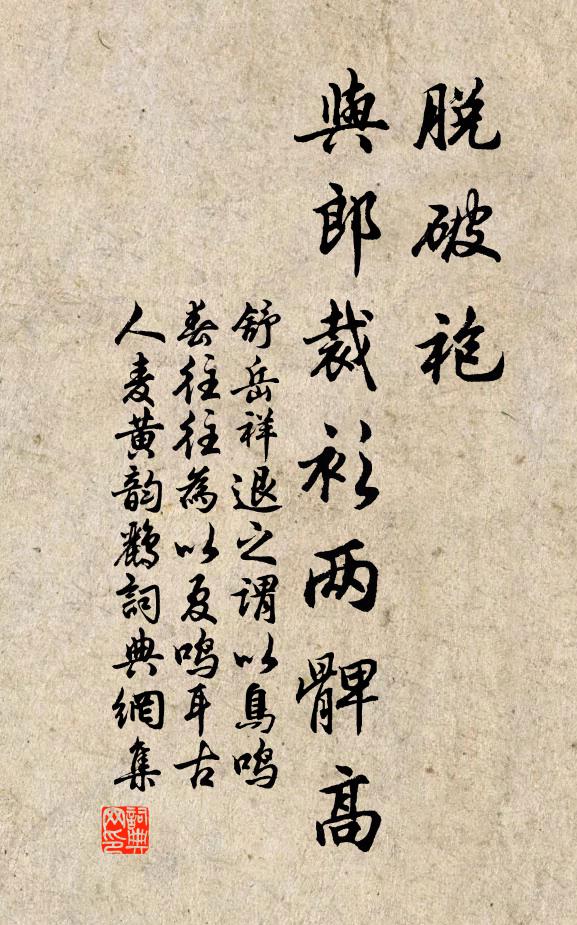 脱破袍
與郎裁衫两髀高
舒岳祥退之謂以鳥鳴
春往往為以夏鳴耳古
人麦黄韵鸝詞典網集
詞典
网印